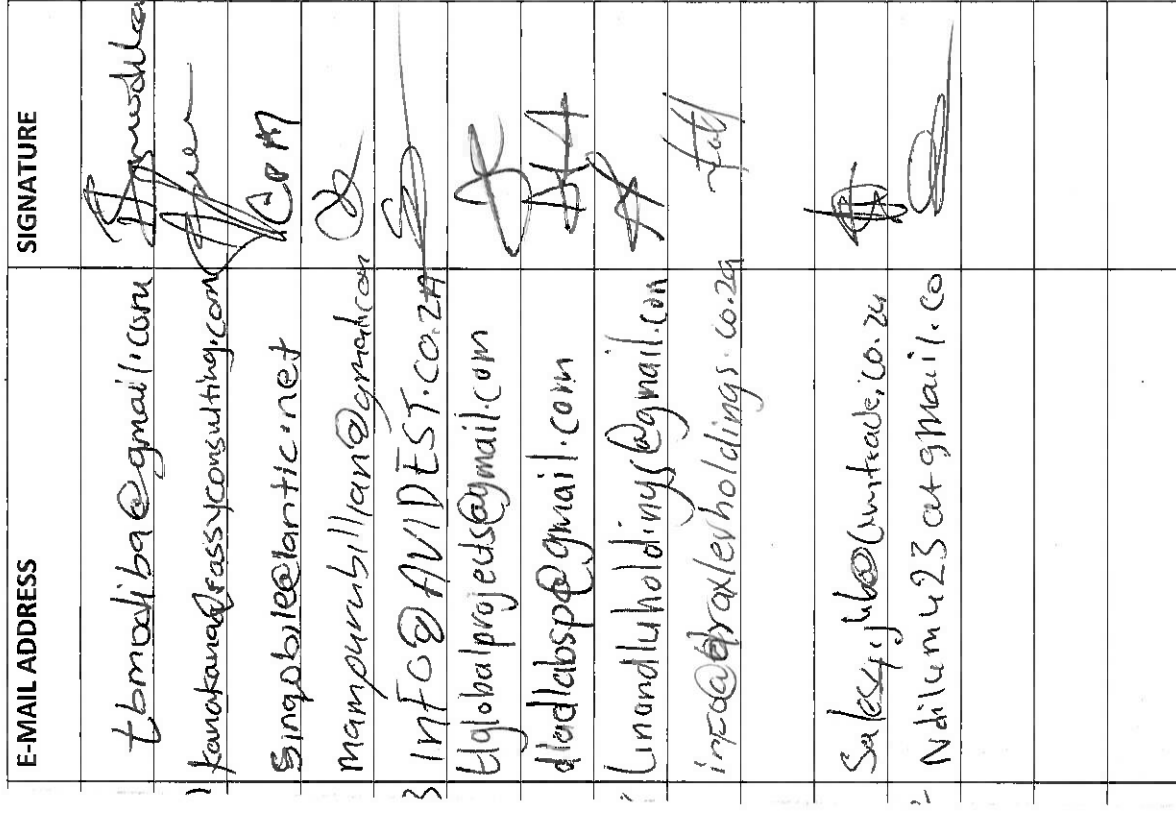 E-MAIL ADDRESS SIGNATURE
tbmodiba@gmail.com
kanakana@fassyconsulting.com
Singobile@lantic.net
mampurubillian@gmail.com
INFO@AVIDEST.CO.ZA
tlglobalprojects@gmail.com
dladlabsp@gmail.com
Linandluholdings@gmail.com
info@draxlerholdings.co.za
Ndilumu23 at gmail.co